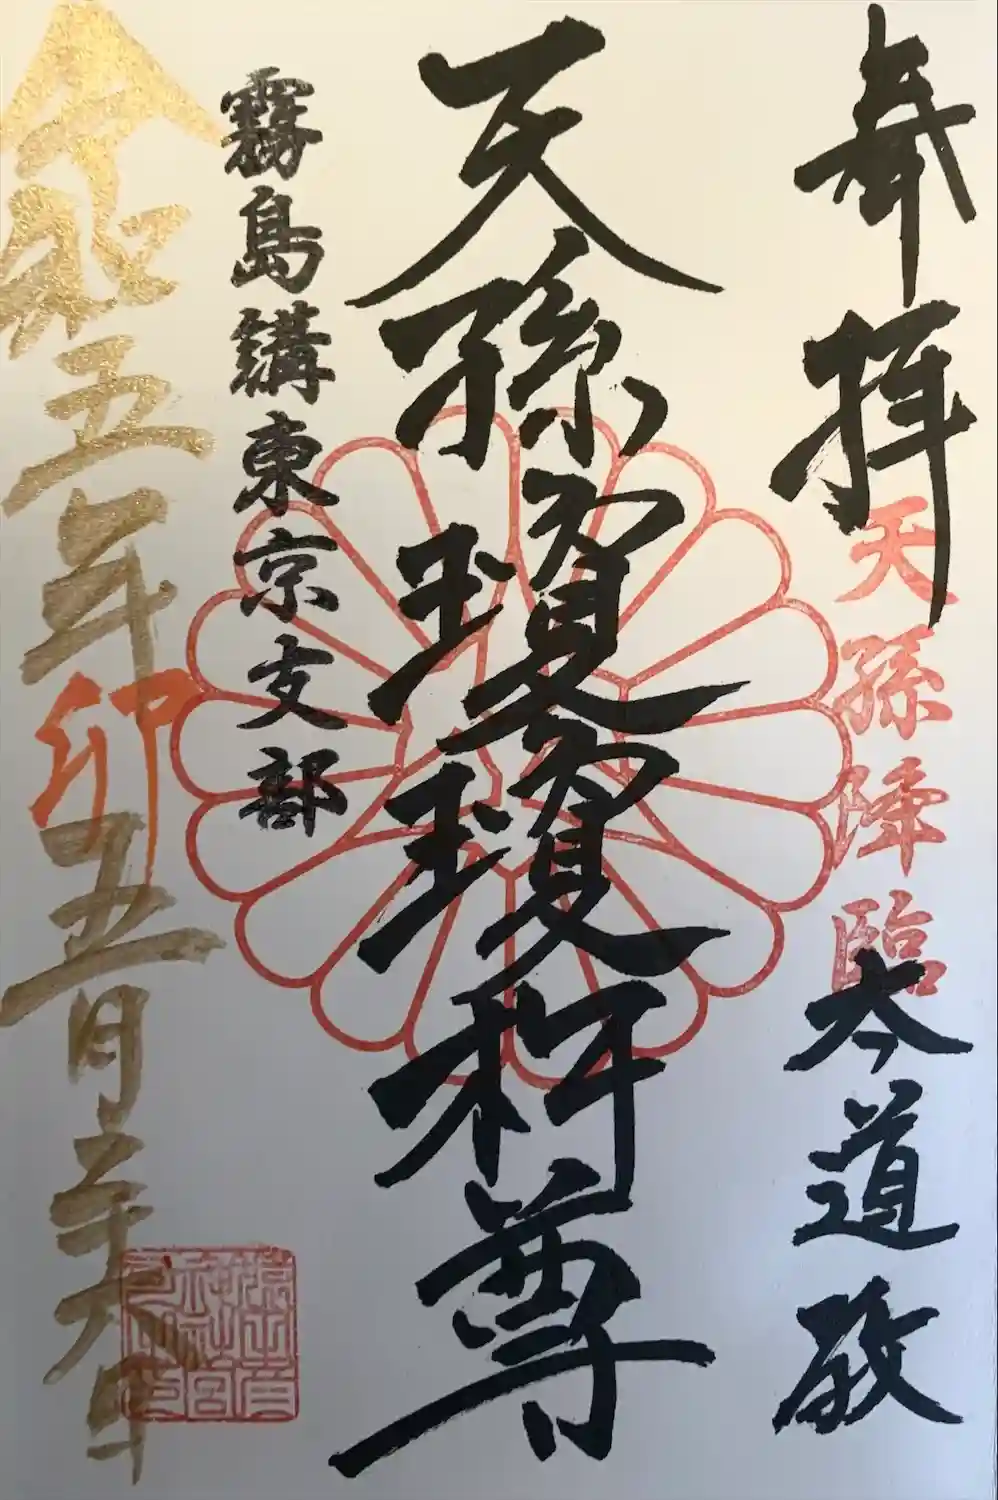 奉拝
天孫降臨
天孫瓊瓊杵尊
霧島講東京支部
令和五年卯五月二十九日